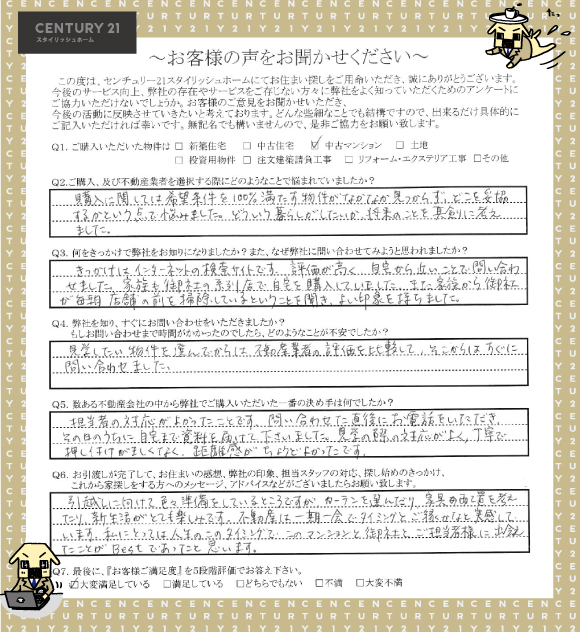 CENTURY 21
スタイリッシュホーム
～お客様の声をお聞かせください～
この度は、センチュリー21スタイリッシュホームにてお住まい探しをご用命いただき、誠にありがとうございます。
今後のサービス向上、弊社の存在やサービスをご存じない方々に弊社をよく知っていただくためのアンケートに
ご協力いただけないでしょうか。お客様のご意見をお聞かせいただき、
今後の活動に反映させていきたいと考えております。どんな些細なことでも結構ですので、出来るだけ具体的に
ご記入いただければ幸いです。無記名でも構いませんので、是非ご協力をお願い致します。
Q1. ご購入いただいた物件は □ 新築住宅 □ 中古住宅 ☑ 中古マンション □ 土地
□ 投資用物件 □ 注文建築請負工事 □ リフォーム・エクステリア工事 □その他
Q2.ご購入、及び不動産業者を選択する際にどのようなことで悩まれていましたか?
購入に関しては希望条件を100%満たす物件がなかなか見つからず、どこを妥協
するかという点で悩みました。どういう暮らしがしたいか、将来のことを真剣に考え
ました。
Q3. 何をきっかけで弊社をお知りになりましたか?また、なぜ弊社に問い合わせてみようと思われましたか?
きっかけはインターネットの検索サイトです。評価が高く、自宅から近いことで問い合わ
せました。家族も御社の系列店で自宅を購入していました。また家族から御社
が毎朝店舗の前を掃除しているということを聞き、よい印象を持ちました。
Q4. 弊社を知り、すぐにお問い合わせをいただきましたか?
もしお問い合わせまで時間がかかったのでしたら、どのようなことが不安でしたか?
見学したい物件を選んでからは、不動産業者の評価を比較して、そこからはすぐに
問い合わせました。
Q5. 数ある不動産会社の中から弊社でご購入いただいた一番の決め手は何でしたか?
担当者の対応がよかったことです。問い合わせた直後にお電話をいただき、
その日のうちに自宅まで資料を届けて下さいました。見学の際の対応がよく、丁寧で
押し付けがましくなく、距離感がちょうどよかったです。
Q6. お引渡しが完了して、お住まいの感想、弊社の印象、担当スタッフの対応、探し始めのきっかけ、
これから家探しをする方へのメッセージ、アドバイスなどがございましたらお願い致します。
引越しに向けて色々準備をしているところですが、カーテンを選んだり、家具の配置を考え
たり、新生活がとても楽しみです。不動産は一期一会でタイミングとご縁かなと実感して
います。私にとっては人生のこのタイミングで、このマンションと御社と、ご担当者様に出会え
たことがBestであったと思います。
Q7. 最後に、『お客様ご満足度』を5段階評価でお答え下さい。
☑大変満足している □満足している □どちらでもない □不満 □大変不満